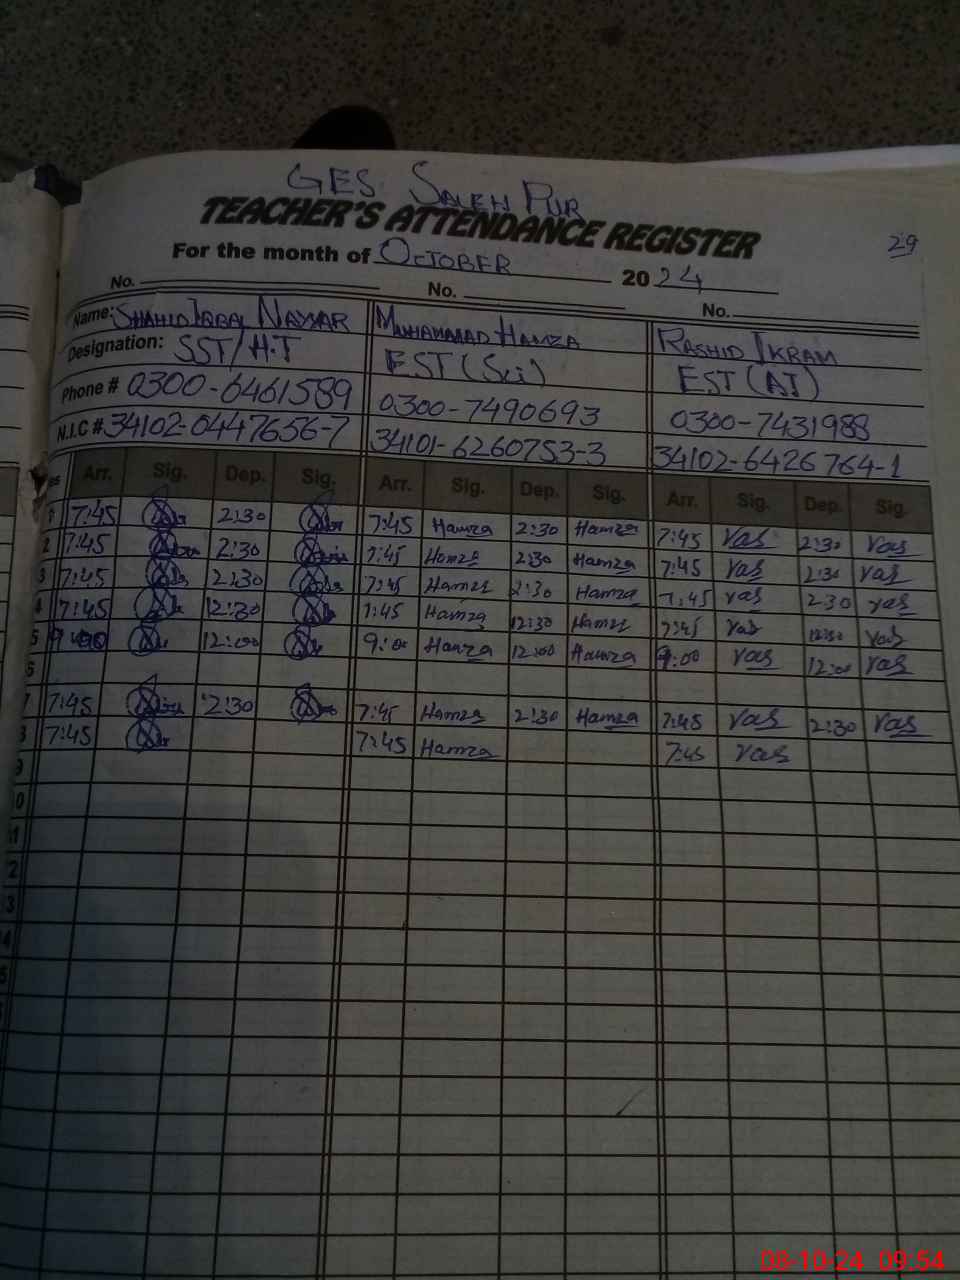 GES SALEH PUR
TEACHER'S ATTENDANCE REGISTER 29
For the month of OCTOBER 2024
No. No. No.
Name: SHAHID IQBAL NAYYAR MUHAMMAD HAMZA RASHID IKRAM
Designation: SST/H.T EST (Sci) EST (AT)
Phone # 0300-6461589 0300-7490693 0300-7431988
N.I.C # 34102-0447656-7 34101-6260753-3 34102-6426764-1
Arr. Sig. Dep. Sig. Arr. Sig. Dep. Sig. Arr. Sig. Dep. Sig.
7:45 2:30 7:45 Hamza 2:30 Hamza 7:45 2:30
2 7:45 2:30 7:45 Hamza 2:30 Hamza 7:45 2:30
3 7:45 2:30 7:45 Hamza 2:30 Hamza 7:45 2:30
4 7:45 12:30 7:45 Hamza 12:30 Hamza 7:45 12:30
5 9:00 12:00 9:00 Hamza 12:00 Hamza 9:00 12:00
6
7 7:45 2:30 7:45 Hamza 2:30 Hamza 7:45 2:30
7:45 7:45 Hamza 7:45
9
0
1
2
3
4
08-10-24 09:54